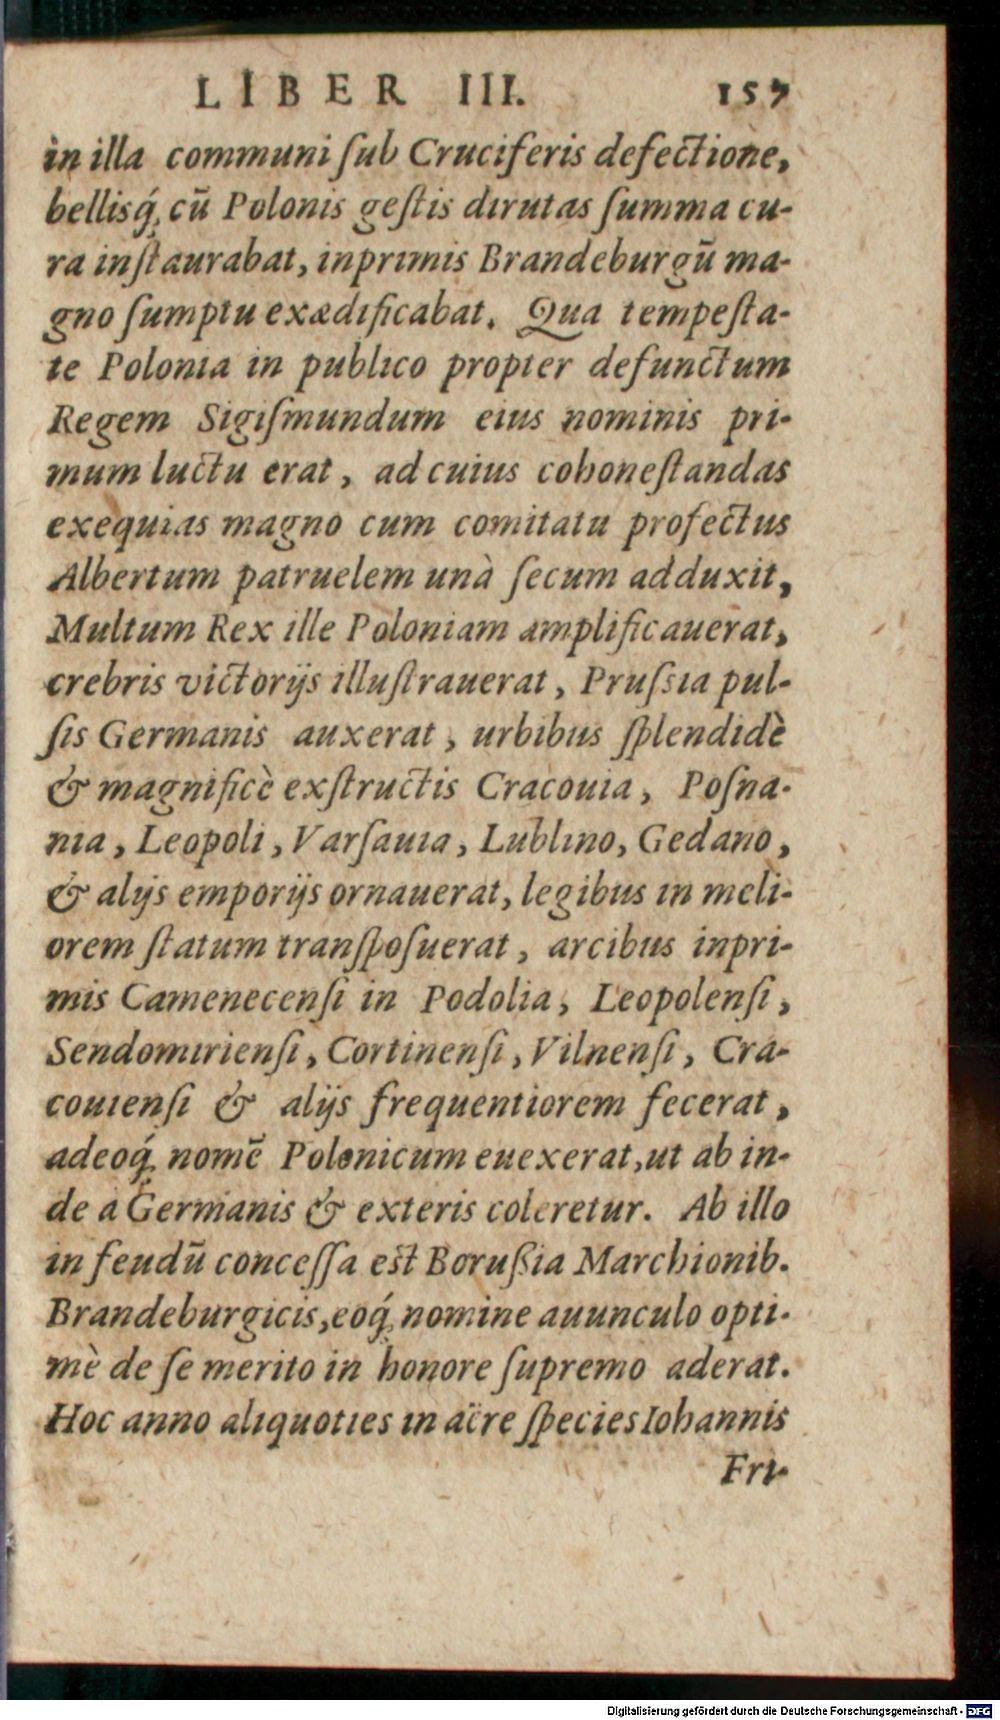 LIBER III. 157
in illa communi ſub Cruciferis defectione,
bellisq́; cū Polonis geſtis dirutas ſumma cu-
ra inſtaurabat, inprimis Brandeburgū ma-
gno ſumptu exædificabat. Qua tempeſta-
te Polonia in publico propter defunctum
Regem Sigiſmundum eius nominis pri-
mum luctu erat, ad cuius cohoneſtandas
exequias magno cum comitatu profectus
Albertum patruelem unà ſecum adduxit,
Multum Rex ille Poloniam amplificauerat,
crebris victorijs illuſtrauerat, Pruſsia pul-
ſis Germanis auxerat, urbibus ſplendidè
& magnificè exſtructis Cracouia, Poſna-
nia, Leopoli, Varſauia, Lublino, Gedano,
& alijs emporijs ornauerat, legibus in meli-
orem ſtatum tranſpoſuerat, arcibus inpri-
mis Camenecenſi in Podolia, Leopolenſi,
Sendomirienſi, Cortinenſi, Vilnenſi, Cra-
couienſi & alijs frequentiorem fecerat,
adeoq́; nomē Polonicum euexerat, ut ab in-
de a Germanis & exteris coleretur. Ab illo
in feudū conceſſa est Borußia Marchionib.
Brandeburgicis, eoq́; nomine auunculo opti-
mè de ſe merito in honore ſupremo aderat.
Hoc anno aliquoties in aëre ſpecies Iohannis
Fri-
Digitalisierung gefördert durch die Deutsche Forschungsgemeinschaft - DFG